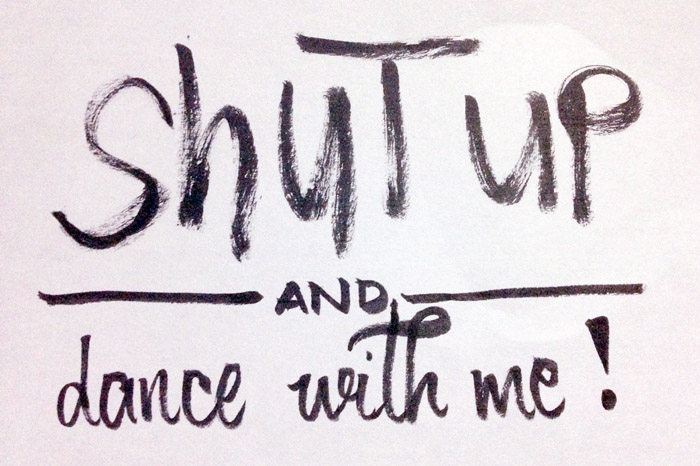 shuT up
AND
dance with me!